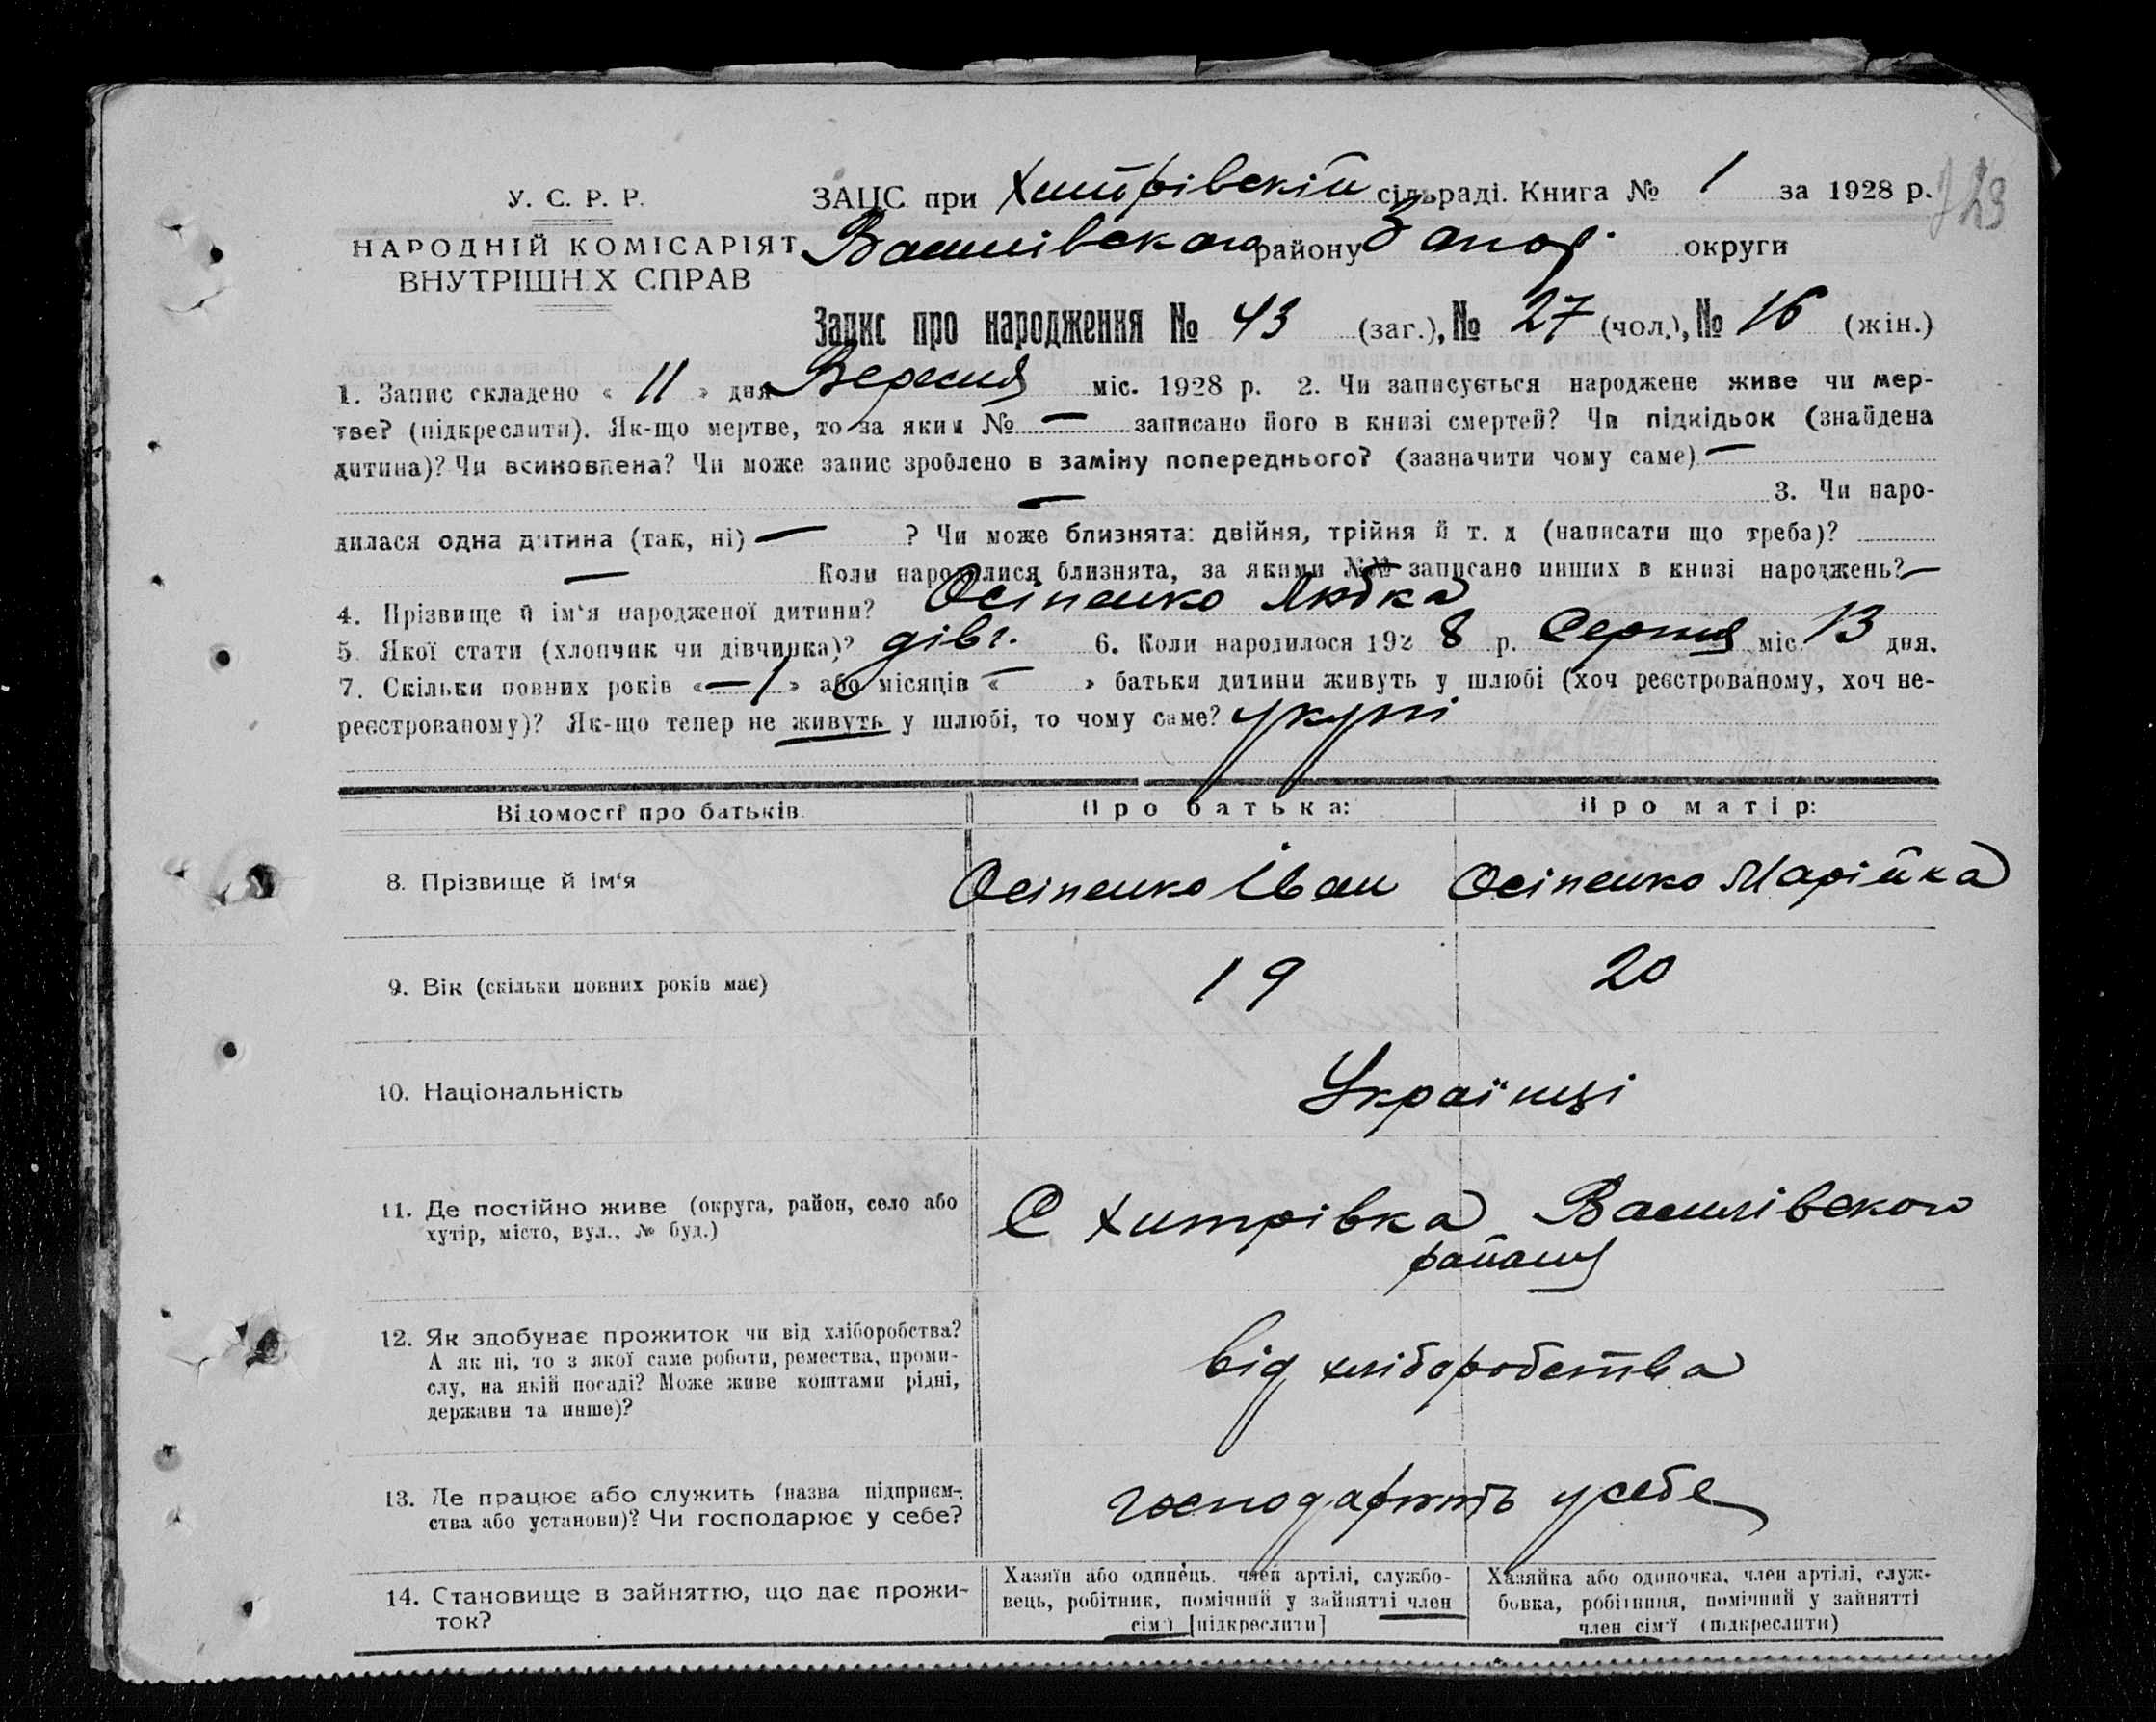 У. С. Р. Р.
НАРОДНІЙ КОМІСАРІЯТ
ВНУТРІШН Х СПРАВ
ЗАЦС при Хитрівскій сільраді. Книга № 1 за 1928 р.
Василівського району Запор. округи
Запис про народження № 43 (заг.), № 27 (чол.), № 16 (жін.)
1. Запис складено « 11 » дня Вересня міс. 1928 р. 2. Чи записується народжене живе чи мер-
тве? (підкреслити). Як-що мертве, то за яким № — записано його в книзі смертей? Чи підкідьок (знайдена
дитина)? Чи всиновлена? Чи може запис зроблено в заміну попереднього? (зазначити чому саме) —
— 3. Чи наро-
дилася одна дитина (так, ні) — ? Чи може близнята: двійня, трійня й т. д (написати що треба)?
— Коли народилися близнята, за якими №№ записано инших в книзі народжень? —
4. Прізвище й ім'я народженої дитини? Осіпенко Любка
5 Якої стати (хлопчик чи дівчинка)? дівч. 6. Коли народилося 1928 р. Серпня міс. 13 дня.
7. Скільки повних років «— 1» або місяців «— » батьки дитини живуть у шлюбі (хоч реєстрованому, хоч не-
реєстрованому)? Як-що тепер не живуть у шлюбі, то чому саме? укупі
Відомості про батьків.
Про батька:
Про матір:
8. Прізвище й ім'я
Осіпенко Іван
Осіпенко Марійка
9. Вік (скільки повних років має)
19
20
10. Національність
Українці
11. Де постійно живе (округа, район, село або
хутір, місто, вул., № буд.)
С Хитрівка Василівского
району
12. Як здобуває прожиток чи від хліборобства?
А як ні, то з якої саме роботи, ремества, проми-
слу, на якій посаді? Може живе коштами рідні,
держави та инше)?
від хліборобства
13. Де працює або служить (назва підприєм-
ства або установи)? Чи господарює у себе?
господарють у себе
14. Становище в зайняттю, що дає прожи-
ток?
Хазяїн або одинець, член артілі, службо-
вець, робітник, помічний у зайнятті член
сім'ї [підкреслити]
Хазяйка або одиночка, член артілі, служ-
бовка, робітниця, помічний у зайнятті
член сім'ї (підкреслити)